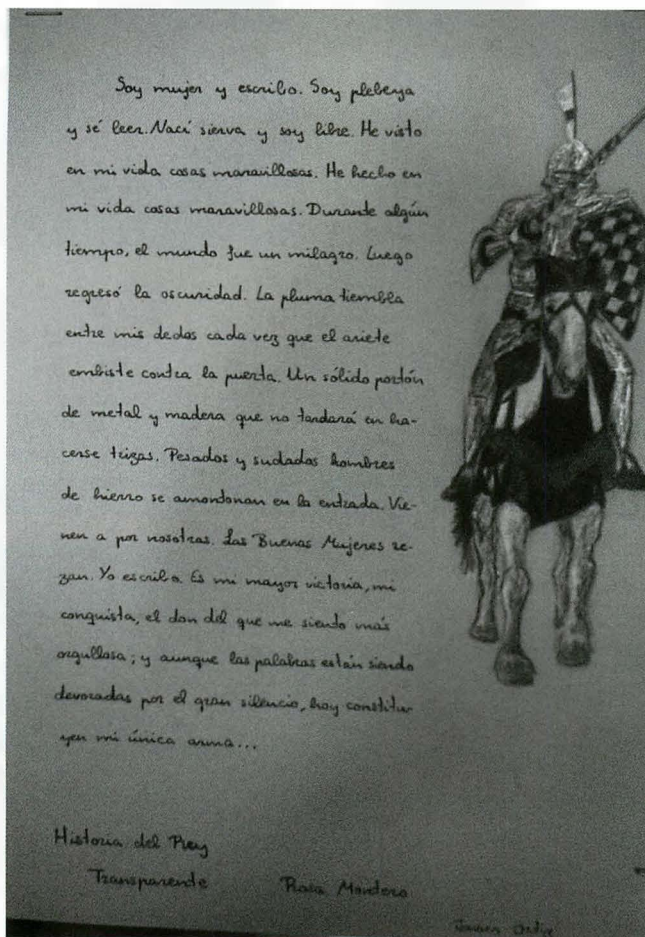 Soy mujer y escribo. Soy plebeya
y sé leer. Nací sierva y soy libre. He visto
en mi vida cosas maravillosas. He hecho en
mi vida cosas maravillosas. Durante algún
tiempo, el mundo fue un milagro. Luego
regresó la oscuridad. La pluma tiembla
entre mis dedos cada vez que el ariete
embiste contra la puerta. Un sólido portón
de metal y madera que no tardará en ha-
cerse trizas. Pesados y sudados hombres
de hierro se amontonan en la entrada. Vie-
nen a por nosotras. Las Buenas Mujeres re-
zan. Yo escribo. Es mi mayor victoria, mi
conquista, el don del que me siento más
orgullosa; y aunque las palabras están siendo
devoradas por el gran silencio, hoy constitu-
yen mi única arma...
Historia del Rey
Transparente Rosa Montero